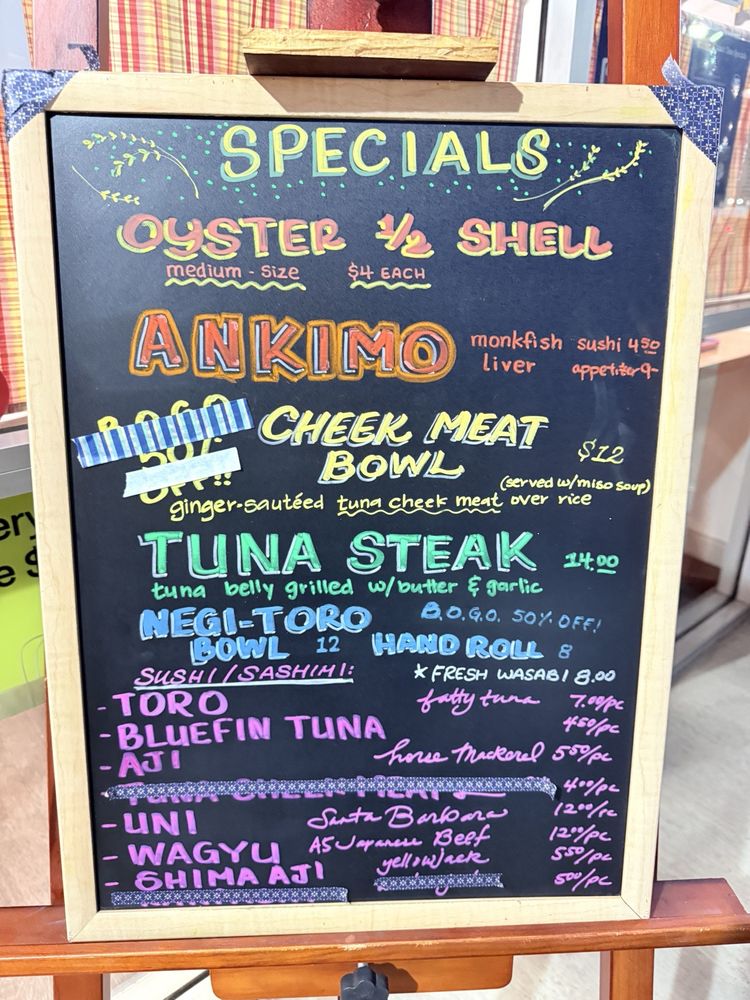 SPECIALS
OYSTER 1/2 SHELL
medium - size $4 EACH
ANKIMO monkfish liver sushi 4.50
appetizer 9-
B.O.G.O 50% OFF!!
CHEEK MEAT BOWL $12
(served w/miso soup)
ginger-sautéed tuna cheek meat over rice
TUNA STEAK 14.00
tuna belly grilled w/butter & garlic
NEGI-TORO B.O.G.O. 50% OFF!
BOWL 12 HAND ROLL 8
SUSHI/SASHIMI: * FRESH WASABI 8.00
- TORO fatty tuna 7.00/pc
- BLUEFIN TUNA 4.50/pc
- AJI horse Mackerel 5.50/pc
4.00/pc
- UNI Santa Barbara 12.00/pc
- WAGYU A5 Japanese Beef 12.00/pc
- SHIMA AJI yellowjack 5.50/pc
5.00/pc